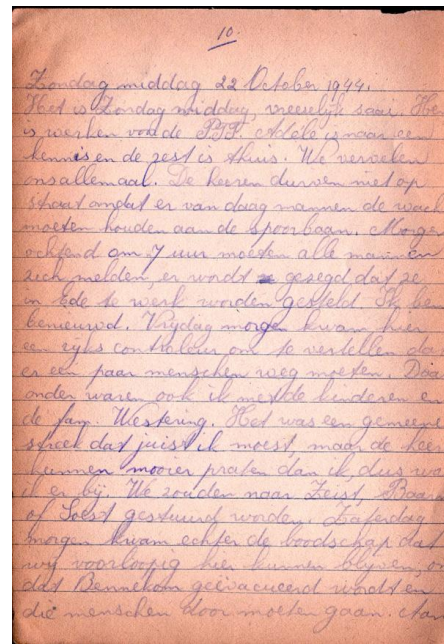 10.
Zondag middag 22 October 1944.
Het is Zondag middag, vreeselijk saai. Her
is werken voor de P.T.T. Adèle is naar een
kennis en de rest is thuis. We vervelen
ons allemaal. De heeren durven niet op
straat omdat er van daag mannen de wach
moeten houden aan de spoorbaan. Morgen
ochtend om 7 uur moeten alle mannen
zich melden, er wordt gezegd dat ze
in Ede te werk worden gesteld. Ik ben
benieuwd. Vrijdag morgen kwam hier
een rijks controleur om te vertellen dat
er een paar menschen weg moeten. Daar
onder waren ook ik met de kinderen en
de fam. Westering. Het was een gemeene
streek dat juist ik moest, maar de heer
kunnen mooier praten dan ik, dus wa
ik er bij. We zouden naar Zeist, Baarn
of Soest gestuurd worden. Zaterdag
morgen kwam echter de boodschap dat
wij voorloopig hier kunnen blijven, om
dat Bennekom geëvacueerd wordt en
die menschen door moeten gaan.